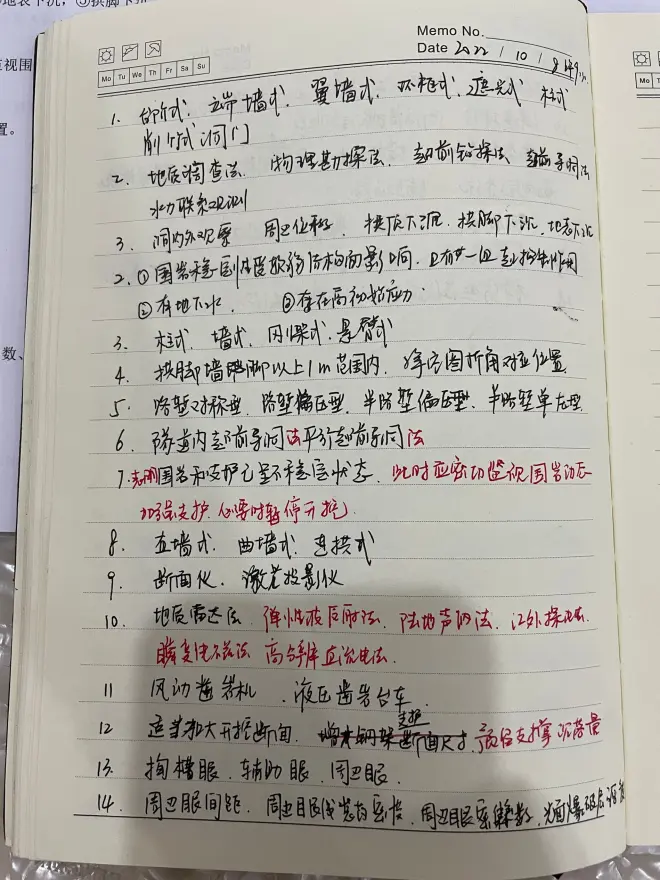 地表下沉，⑤拱脚下
视围
置。
数、
Memo No.
Mo Tu We Th Fr Sa Su
Date 2022 / 10 / 8
1. 台阶式. 端墙式. 翼墙式. 环框式. 遮光式 柱式
削竹式洞门
2. 地质调查法. 物理勘探法. 超前钻探法. 超前导洞法
水力联系观测
3. 洞内外观察 周边位移. 拱顶下沉. 拱脚下沉. 地表下沉
2. ① 围岩稳 结构面影响.
② 有地下水. ③ 存在高初始应力.
3. 柱式. 墙式. 悬臂式
4. 拱脚墙 脚以上1m范围内. 折角对应位置
5. 路堑对称型. 路堑偏压型. 半路堑偏压型. 半路堑单压型
6. 隧道内超前导洞法平行超前导洞法
7. 表明围岩和支护已呈不稳定状态. 此时应密切监视围岩动态
加强支护. 必要时暂停开挖.
8. 直墙式. 曲墙式. 连拱式
9. 断面仪. 激光投影仪
10. 地质雷达法. 弹性波反射法. 陆地声纳法. 红外探测法.
瞬变电磁法 高分辨直流电法.
11 风动凿岩机. 液压凿岩台车.
支护
12 适当扩大开挖断面. 增大钢架断面尺寸. 预留支撑沉落量
13. 掏槽眼. 辅助眼. 周边眼.
14. 周边眼间距. 周边眼线装药密度. 周边眼密集系数.